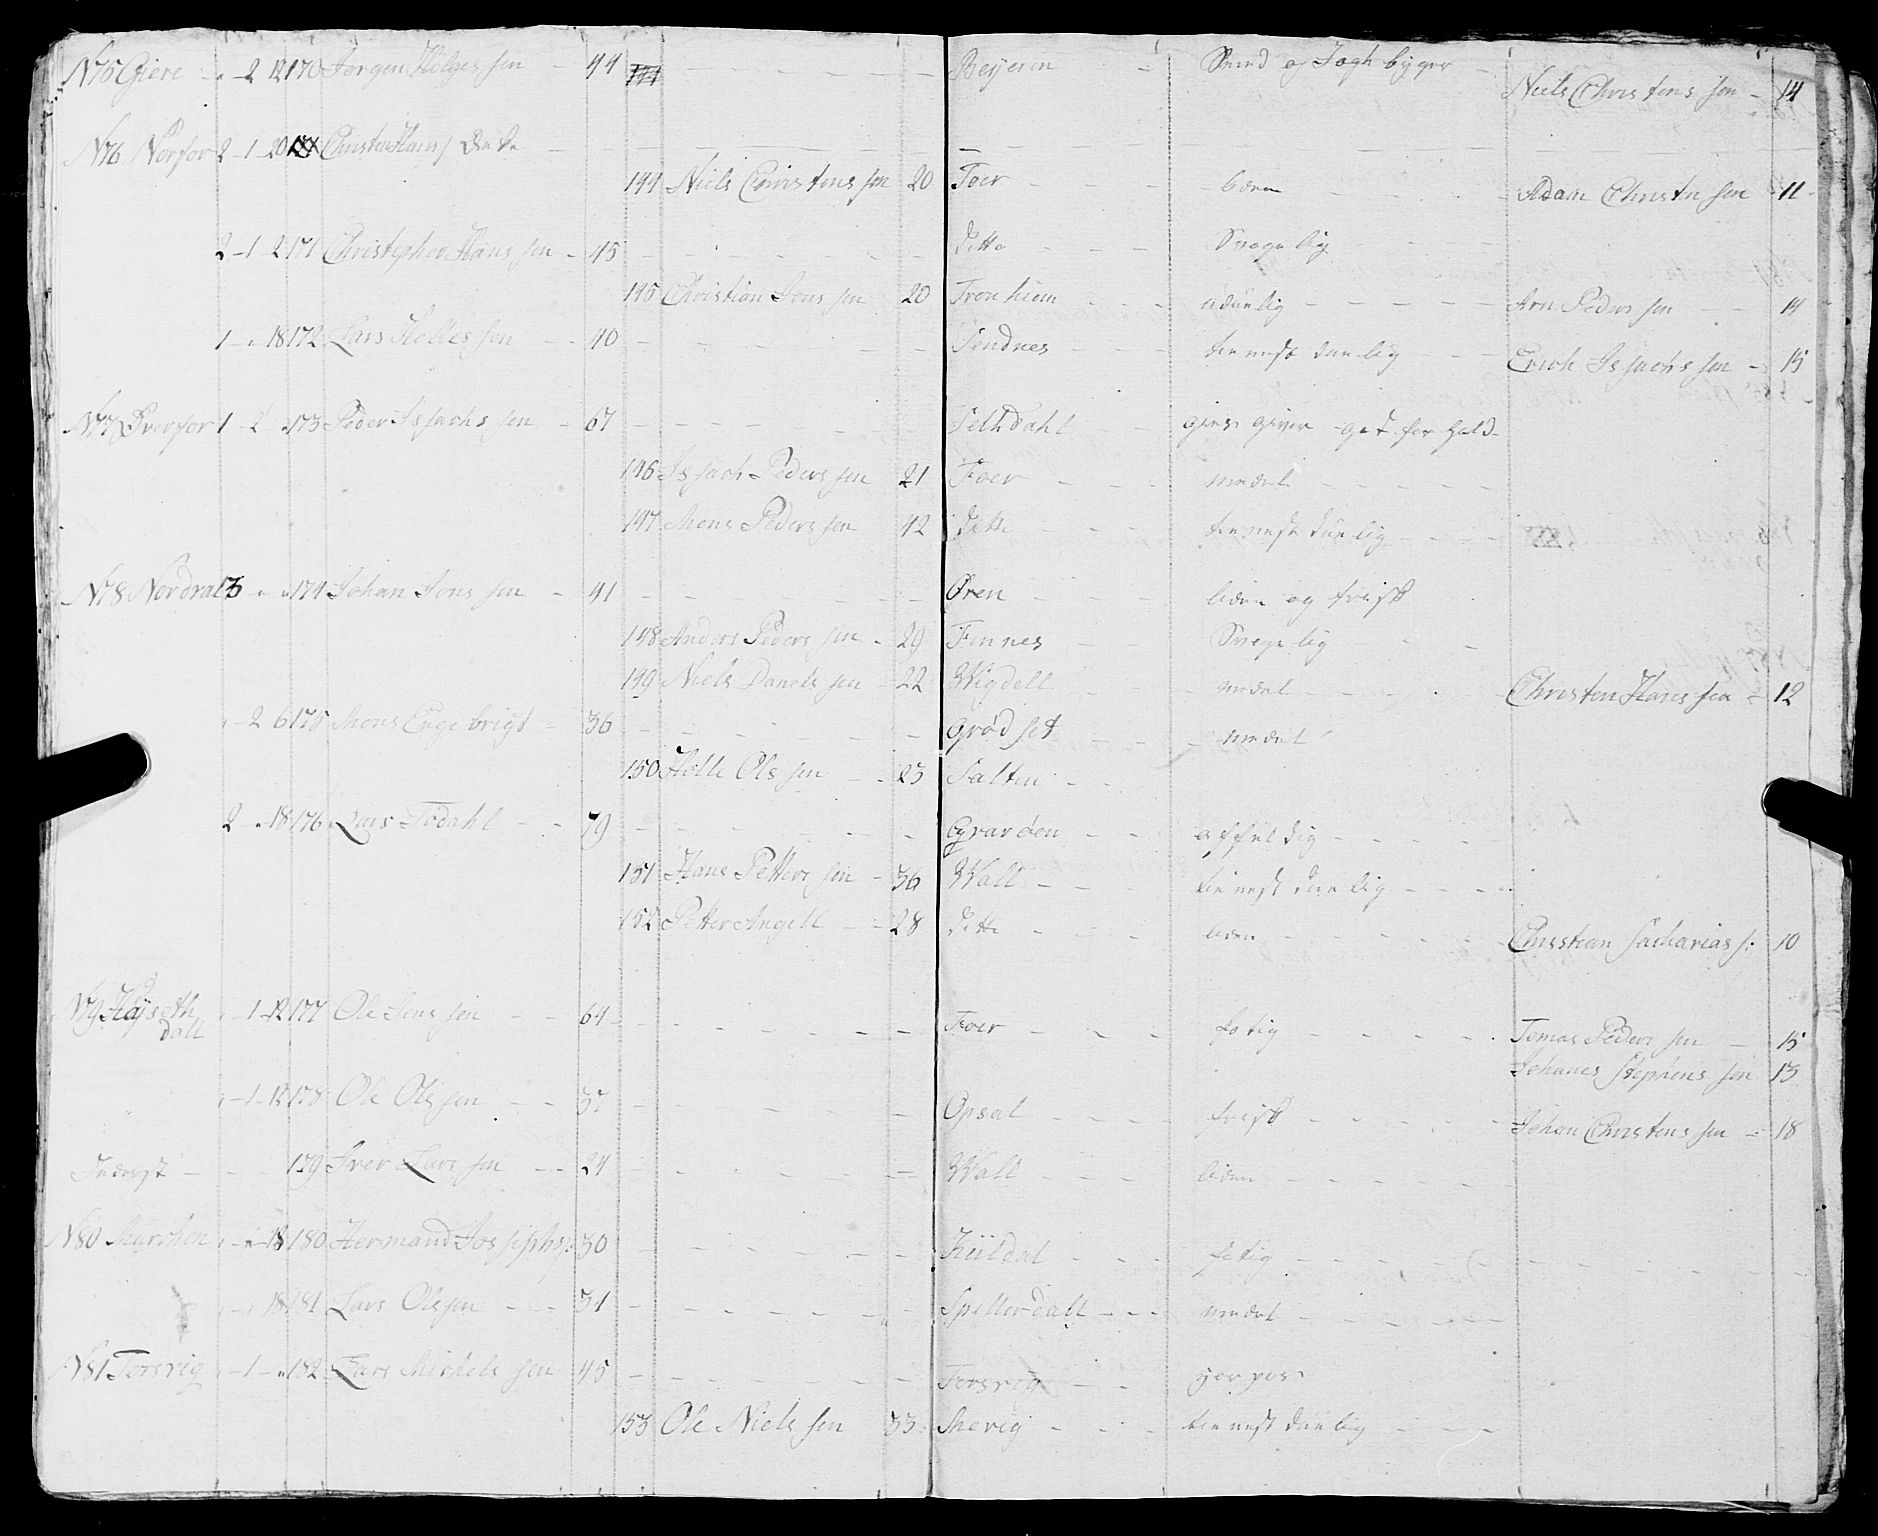 N75 Giere - " - 2 12 170 Jørgen Helges sen - 44 144 - - - Beÿeren - Smed og Jagh byger -
Niels Christens sen - 14
N76 Nørfor 2 - 1 - 20 171 Christen Hans
144 Niels Christens sen 20 Foer - - - liden - - - Adam Christen sen - 11
2 - 1 - 2 171 Christopher Hans sen - 45 - - - ditto - - - Svagelig - - -
145 Christian Jons sen 20 Tronhiem - - - uduelig - - - Arn Peders sen - - 14
1 - " 18 172 Lars Helles sen - - 40 - - - Sendnes - - - tienest duelig - - Erich Issachs sen - 15
N77 Øverfor 1 - 2 - " 173 Peder Issachs sen - 67 - - - Selhdahl - - giest giver -
146 Issach Peders sen 21 Foer - - - medel - - -
147 Mons Peders sen 42 ditto - - - tienest duelig - - -
N78 Nordral 3 - " " 174 Johan Jons sen - 41 - - - Øren - - - liden og frisk
148 Anders Peders sen - 29 Finnes - - Svagelig - -
149 Niels Danels sen - 22 Wigdell - - - medel - - - Christen Hans sen - 12
" - 2 6 175 Mons Engebrigt - 36 - - - Grødset - - - medel
150 Helle Ols sen - - 23 Salten - -
2 - " 18 176 Lars Todahl - - 79 - - - Grarøen - - affeldig - - -
151 Hans Petters sen - 36 Wall - - - tienest duelig - - -
152 Petter Angell - - 28 ditto - - - liden - - - Christian Sacharias s: 10
N79 Høyseth " - 1 - 12 177 Ole Jens sen - - 64 - - - Foer - - - fatig - - - Tomas Peders sen - 15
dall
Johanes Stephens sen 13
" - 1 - 12 178 Ole Ols sen - - 37 - - - Opsal - - - frisk - - - Johan Christens sen - 18
Inderst - - - 179 Iver Lars sen - - 24 - - - Wall - - - liden - - -
N80 Marchen " - " - 18 180 Hermand Jossephs: 30 - - - Kiildal - - - fatig - - -
" - " 18 181 Lars Ols sen - - - 31 - - - Spellerdall - - - medel - - -
N81 Forsvig " - 1 - " 182 Lars Michels sen 45 - - - Forsvig - -
153 Ole Niels sen 33 Shevig - - - tienest duelig - - -